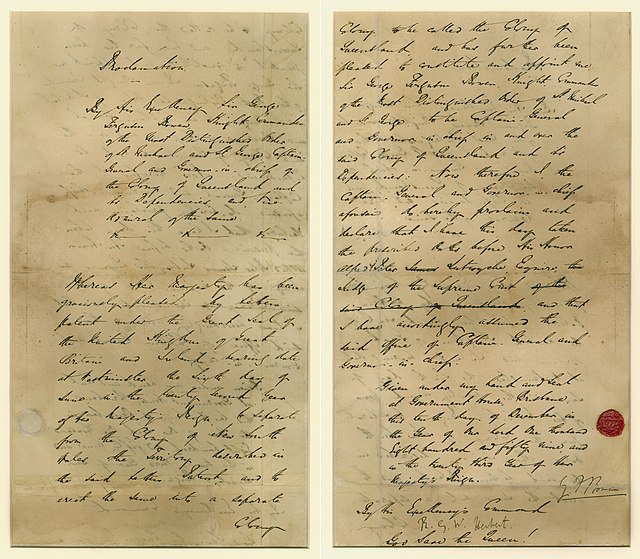 Proclamation
By His Excellency Sir George
Ferguson Bowen Knight Commander
of the Most Distinguished Order
of St Michael and St George Captain
General and Governor in chief of
the Colony of Queensland and
its Dependencies and Vice
Admiral of the same
&c &c &c
Whereas Her Majesty has been
graciously pleased by Letters
patent under the Great Seal of
the United Kingdom of Great
Britain and Ireland bearing date
at Westminster the sixth day of
June in the twenty second Year
of her Majesty's Reign to separate
from the Colony of New South
Wales the Territory described in
the said Letters Patent and to
erect the same into a separate
Colony
Colony to be called the Colony of
Queensland, and has further been
pleased to constitute and appoint me
Sir George Ferguson Bowen Knight Commander
of the Most Distinguished Order of St Michael
and St George to be Captain General
and Governor in chief in and over the
said Colony of Queensland and its
Dependencies. Now therefore I the
Captain General and Governor in chief
aforesaid do hereby proclaim and
declare that I have this day taken
the prescribed Oaths before His Honor
Alfred James Peter Lutwyche Esquire, the
Judge of the Supreme Court of the
said Colony of Queensland and that
I have accordingly assumed the
said office of Captain General and
Governor in chief.
Given under my hand and Seal
at Government House, Brisbane,
this tenth day of December in
the Year of Our Lord One thousand
Eight hundred and fifty nine and
in the twenty third Year of Her
Majesty's Reign.
G F Bowen
By His Excellency's Command
R. G. W. Herbert
God Save the Queen!